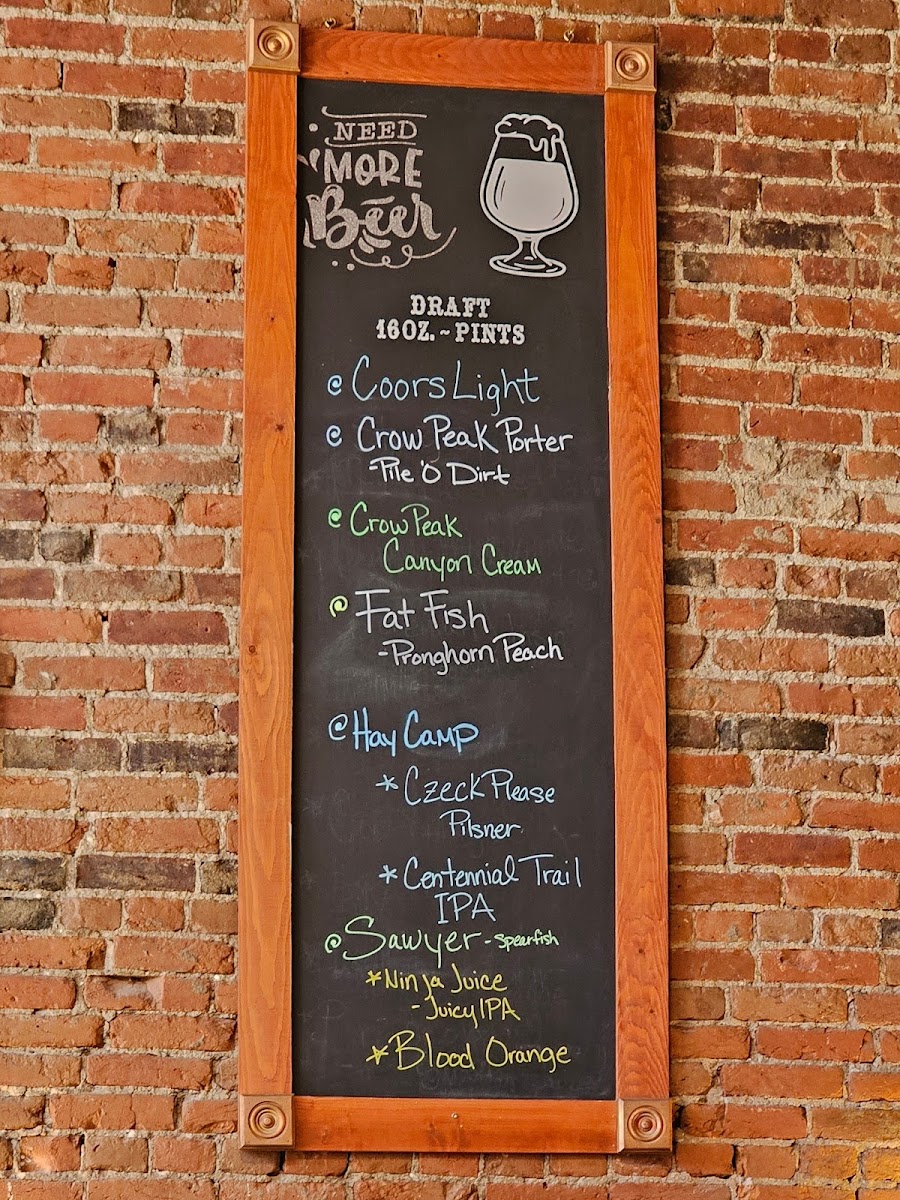 NEED
MORE
Beer
DRAFT
16OZ. ~ PINTS
Coors Light
Crow Peak Porter
-Pile 'O Dirt
Crow Peak
Canyon Cream
Fat Fish
-Pronghorn Peach
Hay Camp
* Czeck Please
Pilsner
* Centennial Trail
IPA
Sawyer - Spearfish
* Ninja Juice
- Juicy IPA
* Blood Orange